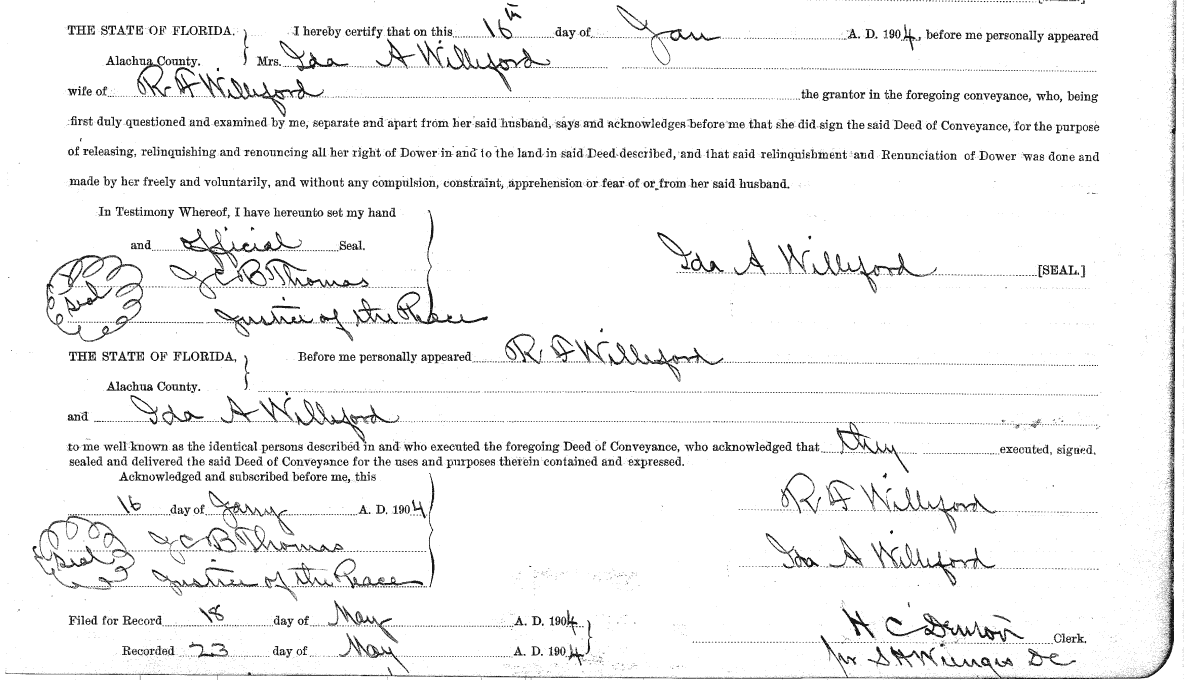 THE STATE OF FLORIDA. } I hereby certify that on this 16th day of Jan A. D. 1904, before me personally appeared
Alachua County. Mrs. Ida A Williford
wife of R F Williford the grantor in the foregoing conveyance, who, being
first duly questioned and examined by me, separate and apart from her said husband, says and acknowledges before me that she did sign the said Deed of Conveyance, for the purpose
of releasing, relinquishing and renouncing all her right of Dower in and to the land in said Deed described, and that said relinquishment and Renunciation of Dower was done and
made by her freely and voluntarily, and without any compulsion, constraint, apprehension or fear of or from her said husband.
In Testimony Whereof, I have hereunto set my hand
and official Seal.
Ida A Williford [SEAL.]
Seal J C B Thomas
Justice of the Peace
THE STATE OF FLORIDA, } Before me personally appeared R F Williford
Alachua County.
and Ida A Williford
to me well known as the identical persons described in and who executed the foregoing Deed of Conveyance, who acknowledged that they executed, signed,
sealed and delivered the said Deed of Conveyance for the uses and purposes therein contained and expressed.
Acknowledged and subscribed before me, this
16 day of Jany A. D. 1904
R F Williford
Seal J C B Thomas
Ida A Williford
Justice of the Peace
Filed for Record 18 day of May A. D. 1904
H C Denton Clerk.
Recorded 23 day of May A. D. 1904
per S H Wienges D C